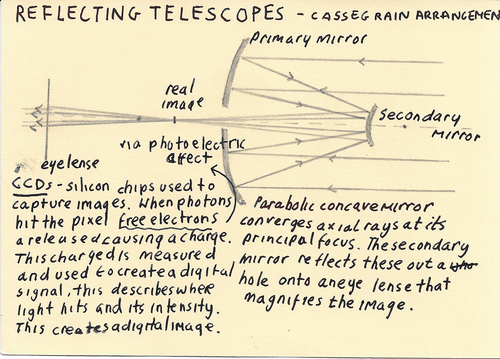 REFLECTING TELESCOPES - CASSEGRAIN ARRANGEMEN
Primary Mirror
real
image
Secondary
mirror
via photoelectric
affect
eyelense
CCDs - silicon chips used to
capture images. When photons
hit the pixel free electrons
are leased causing a charge.
This charged is measured
and used to create a digital
signal, this describes where
light hits and its intensity.
This creates a digital image.
Parabolic concave mirror
converges axial rays at its
principal focus. The secondary
mirror reflects these out a
hole onto an eye lense that
magnifies the image.